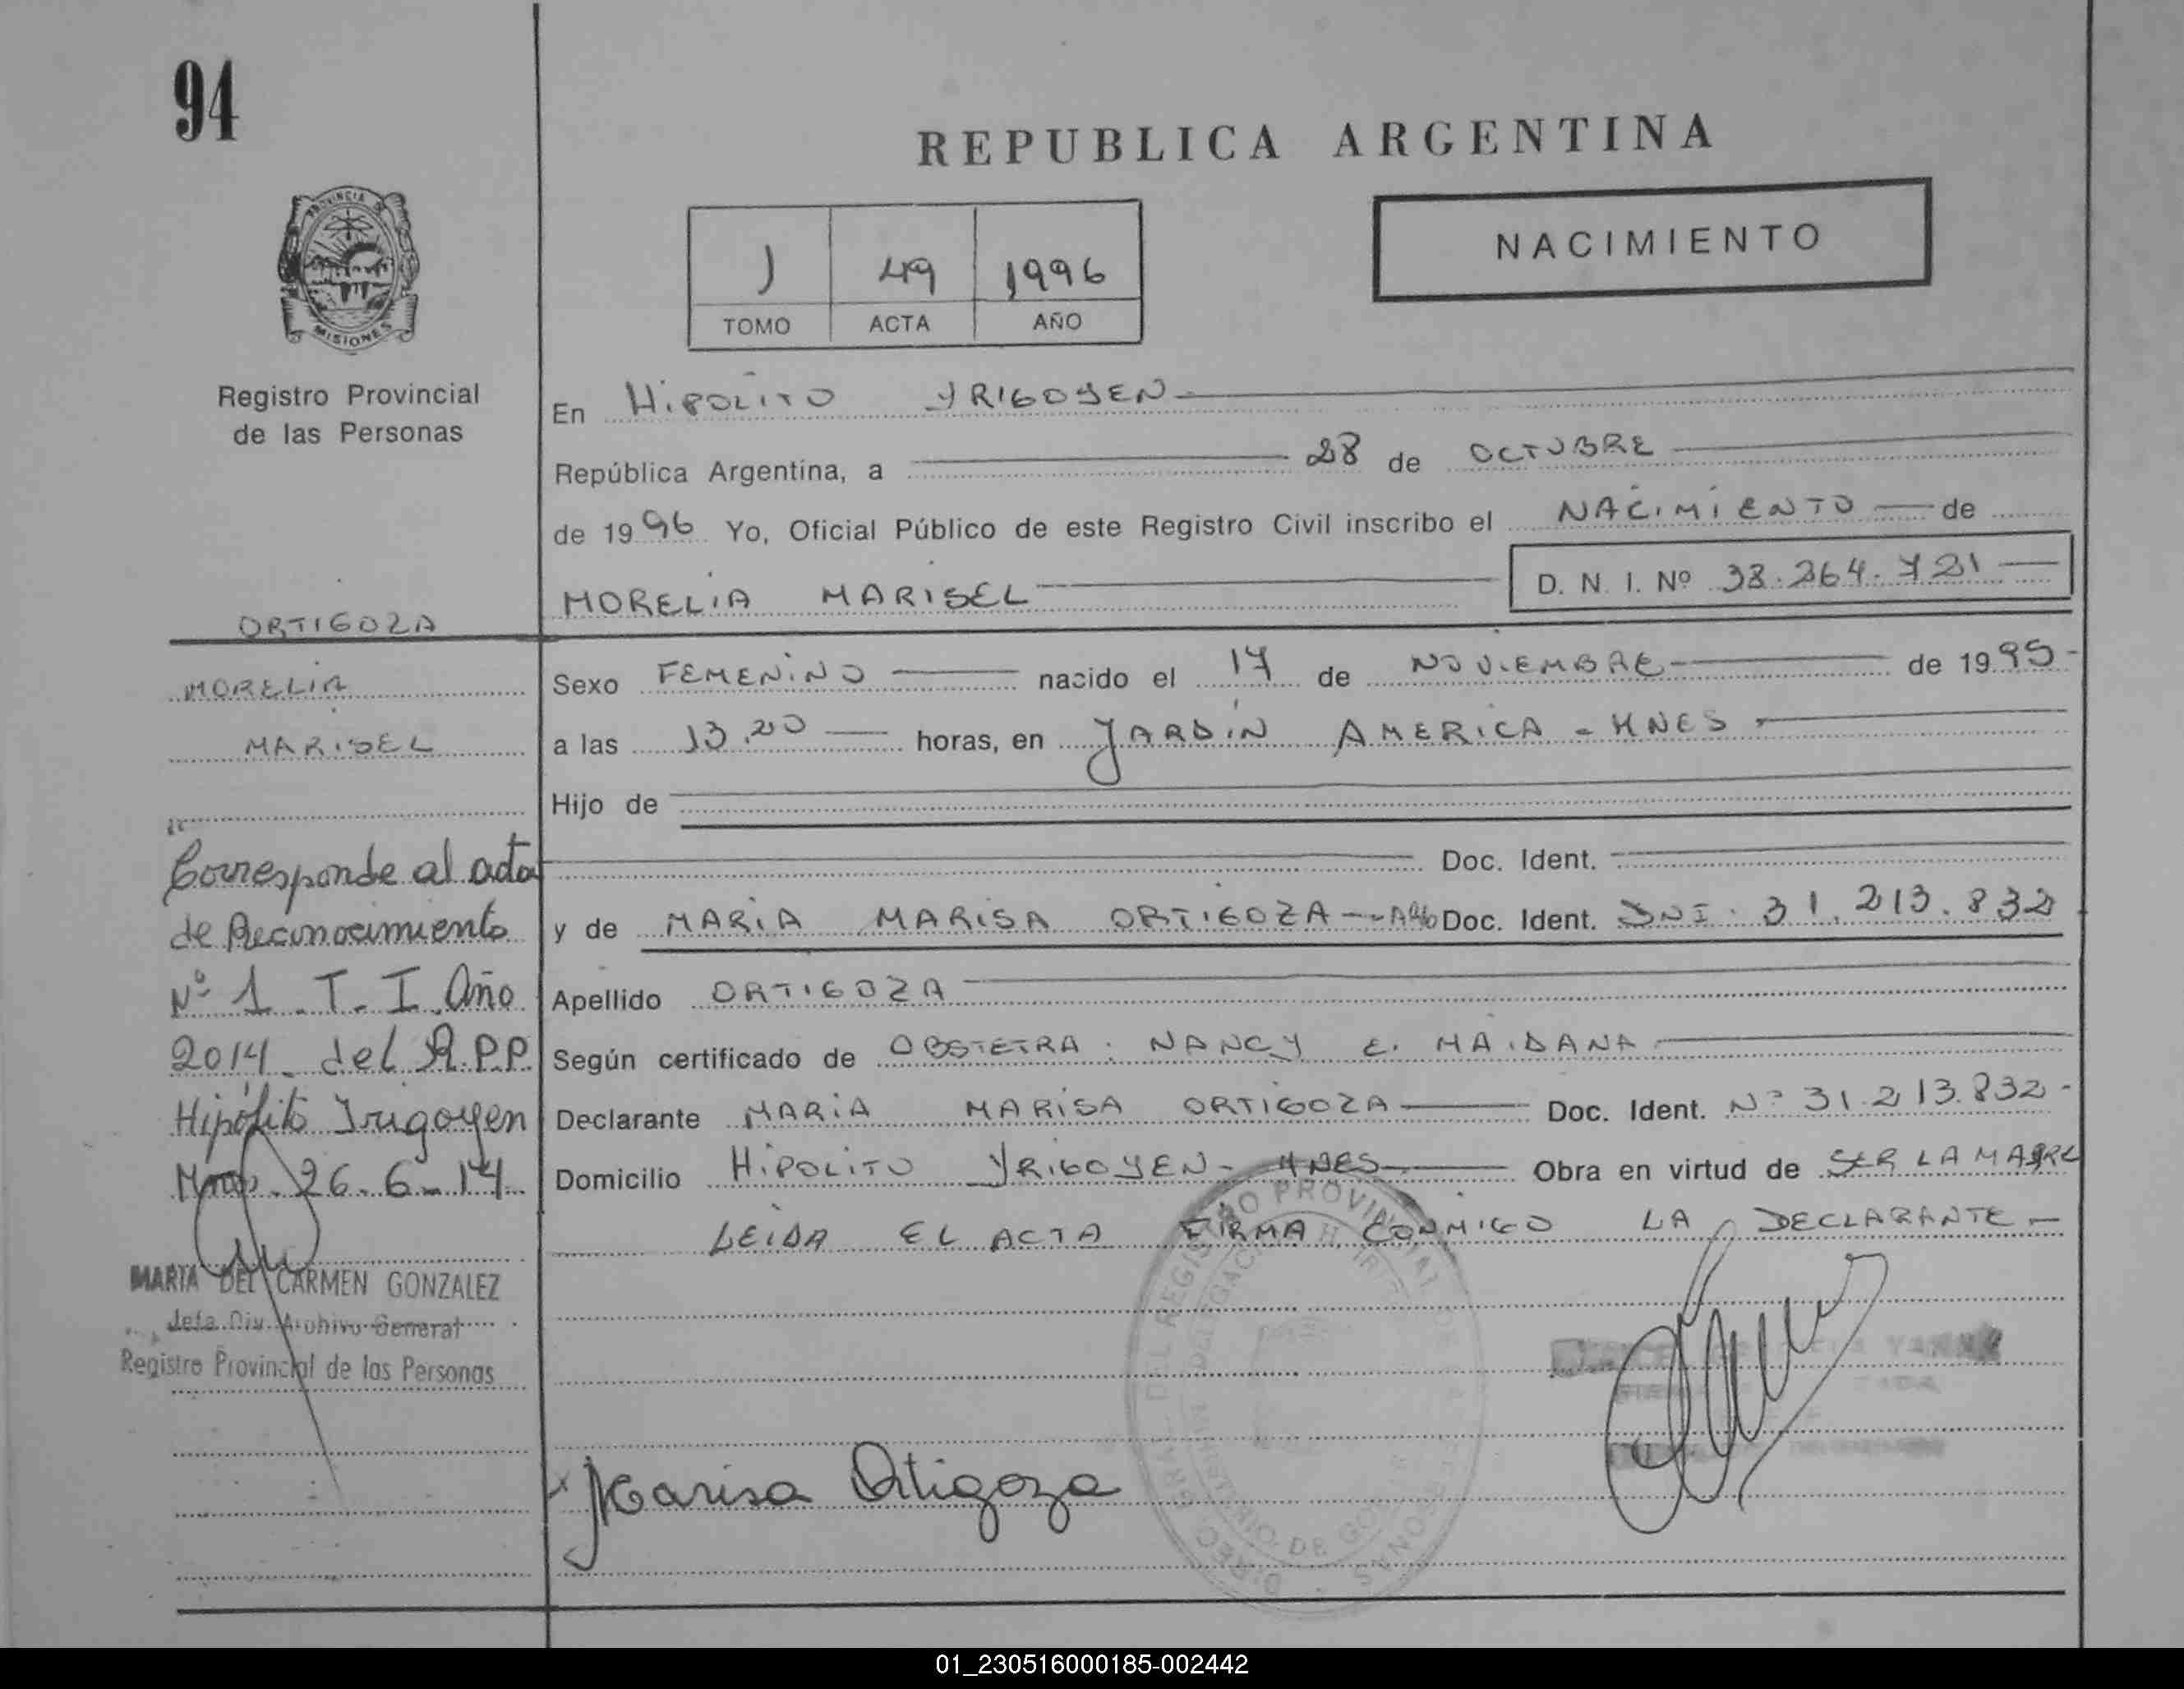 94
REPUBLICA ARGENTINA
PROVINCIA DE
MISIONES
Registro Provincial
de las Personas
NACIMIENTO
1 49 1996
TOMO ACTA AÑO
En HIPOLITO YRIGOYEN
República Argentina, a 28 de OCTUBRE
de 1996 Yo, Oficial Público de este Registro Civil inscribo el NACIMIENTO de
MORELIA MARISEL D. N. I. Nº 38.264.721
ORTIGOZA
MORELIA
MARISEL
Sexo FEMENINO nacido el 17 de NOVIEMBRE de 1995-
a las 13.20 horas, en JARDIN AMERICA - MNES
Hijo de
Doc. Ident.
y de MARIA MARISA ORTIGOZA Doc. Ident. DNI: 31.213.832
Apellido ORTIGOZA
Según certificado de OBSTETRA: NANCY E. MAIDANA
Declarante MARIA MARISA ORTIGOZA Doc. Ident. Nº 31.213.832-
Domicilio HIPOLITO YRIGOYEN- MNES Obra en virtud de SER LA MADRE
LEIDA EL ACTA FIRMA CONMIGO LA DECLARANTE-
Corresponde al acta
de Reconocimiento
Nº 1. T. I. Año
2014. del R.P.P.
Hipólito Irigoyen
26.6-14.
MARIA DEL CARMEN GONZALEZ
Jefa Div. Archivo General
Registro Provincial de las Personas
Marisa Ortigoza
01_230516000185-002442